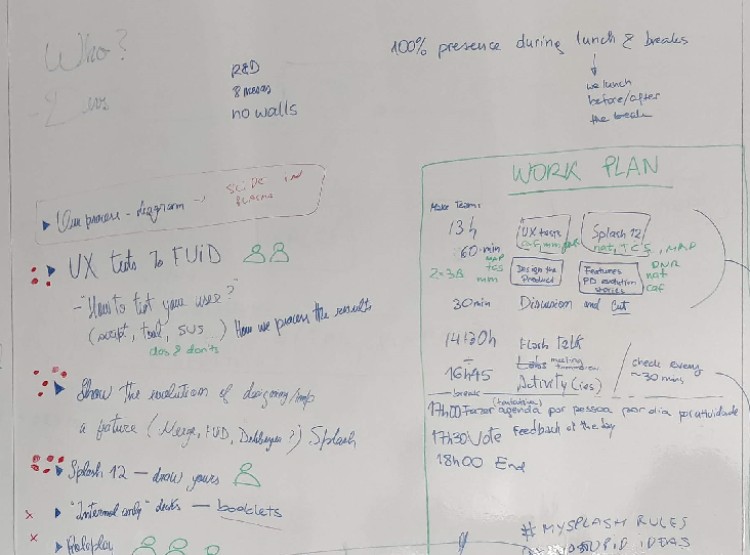 Who?
R&D
no walls
100% presence during lunch & breaks
we lunch
before/after
the break
Our process - diagram → SLIDE IN
UX tests To FUiD
- "How to test your user?"
(script, tool, SUS) How we process the results
dos & donts
Show the evolution of designing/imp
a feature (Merge, FUiD, Debugger?) Splash
Splash 12 — draw yours
"Internal only" decks — booklets
Roleplay
WORK PLAN
Make Teams
13h
UX tests
Splash 12
nat, TCS, MAP
60 min
MAP
TCS
mm
2×30
Design the
Product
Features
PD evolution
stories
DNR
nat
caf
30min Discussion and Cut
14h30h Flash Talk
16h45 Activity(ies)
check every
~30 mins
break
17h00 Fazer agenda por pessoa por dia por atividade
17h30 Vote Feedback of the day
18h00 End
# MYSPLASH RULES
IDEAS